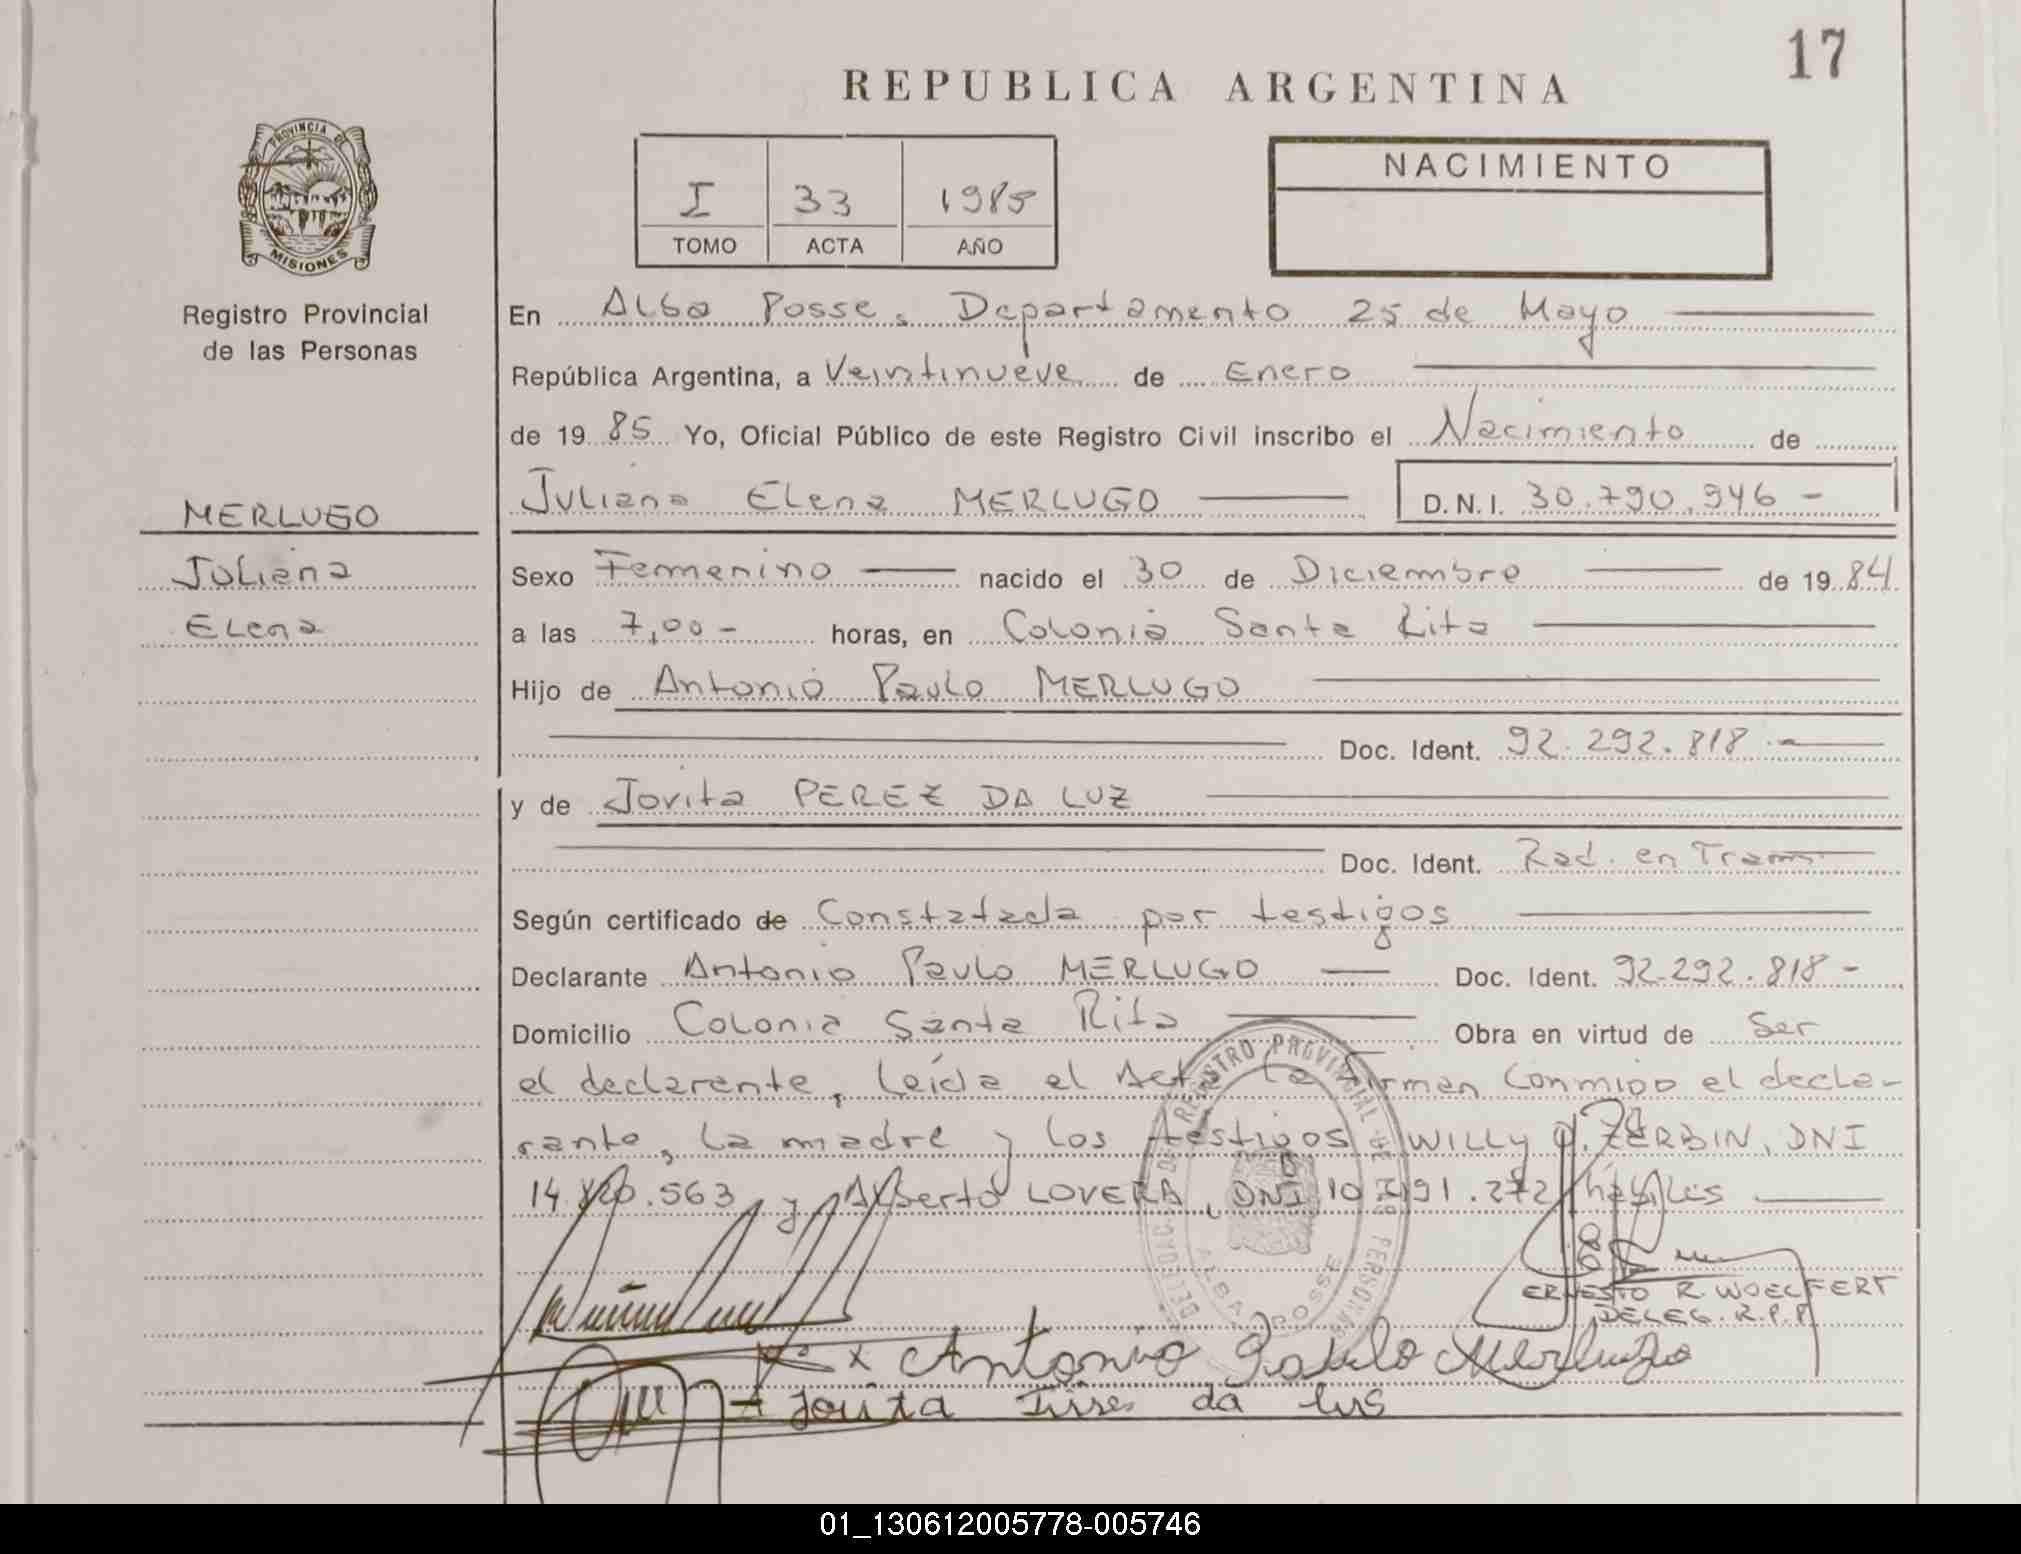 17
REPUBLICA ARGENTINA
PROVINCIA DE
MISIONES
Registro Provincial
de las Personas
I 33 1985
TOMO ACTA AÑO
NACIMIENTO
En Alba Posse, Departamento 25 de Mayo
República Argentina, a Veintinueve de Enero
de 1985 Yo, Oficial Público de este Registro Civil inscribo el Nacimiento de
Juliana Elena MERLUGO D.N.I. 30.790.946 -
MERLUGO
Juliana
Elena
Sexo Femenino nacido el 30 de Diciembre de 1984
a las 7,00 - horas, en Colonia Santa Rita
Hijo de Antonio Paulo MERLUGO
Doc. Ident. 92.292.818 -
y de Jovita PEREZ DA LUZ
Doc. Ident. Rad. en Tram
Según certificado de Constatada por testigos
Declarante Antonio Paulo MERLUGO Doc. Ident. 92.292.818 -
Domicilio Colonia Santa Rita Obra en virtud de Ser
el declarante, leída el Acta la firman conmigo el decla-
rante, la madre y los testigos WILLY ZERBIN, DNI
14. .563, y Alberto LOVERA, DNI 10. 191.272 hábiles
REGISTRO PROVINCIAL DE LAS PERSONAS
ALBA POSSE
ERNESTO R. WOELFERT
DELEG. R.P.P.
x Antonio Pablo Merlugo
Jovita da lus
01_130612005778-005746